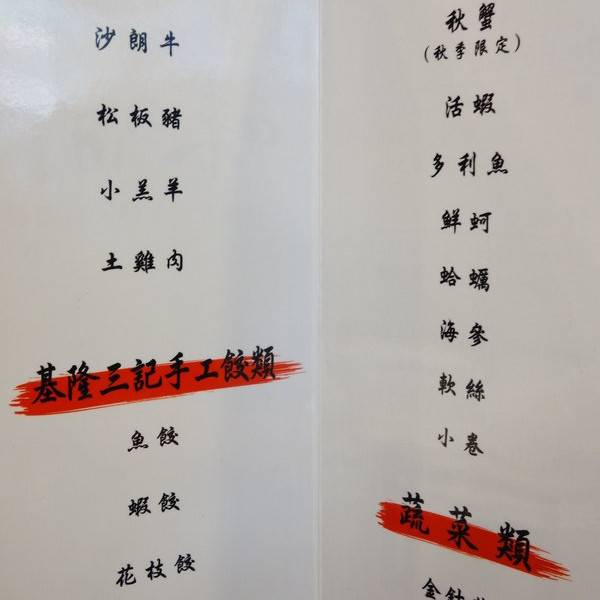 沙朗牛
松板豬
小羔羊
土雞肉
基隆三記手工餃類
魚餃
蝦餃
花枝餃
秋蟹
(秋季限定)
活蝦
多利魚
鮮蚵
蛤蠣
海參
軟絲
小卷
蔬菜類
金針